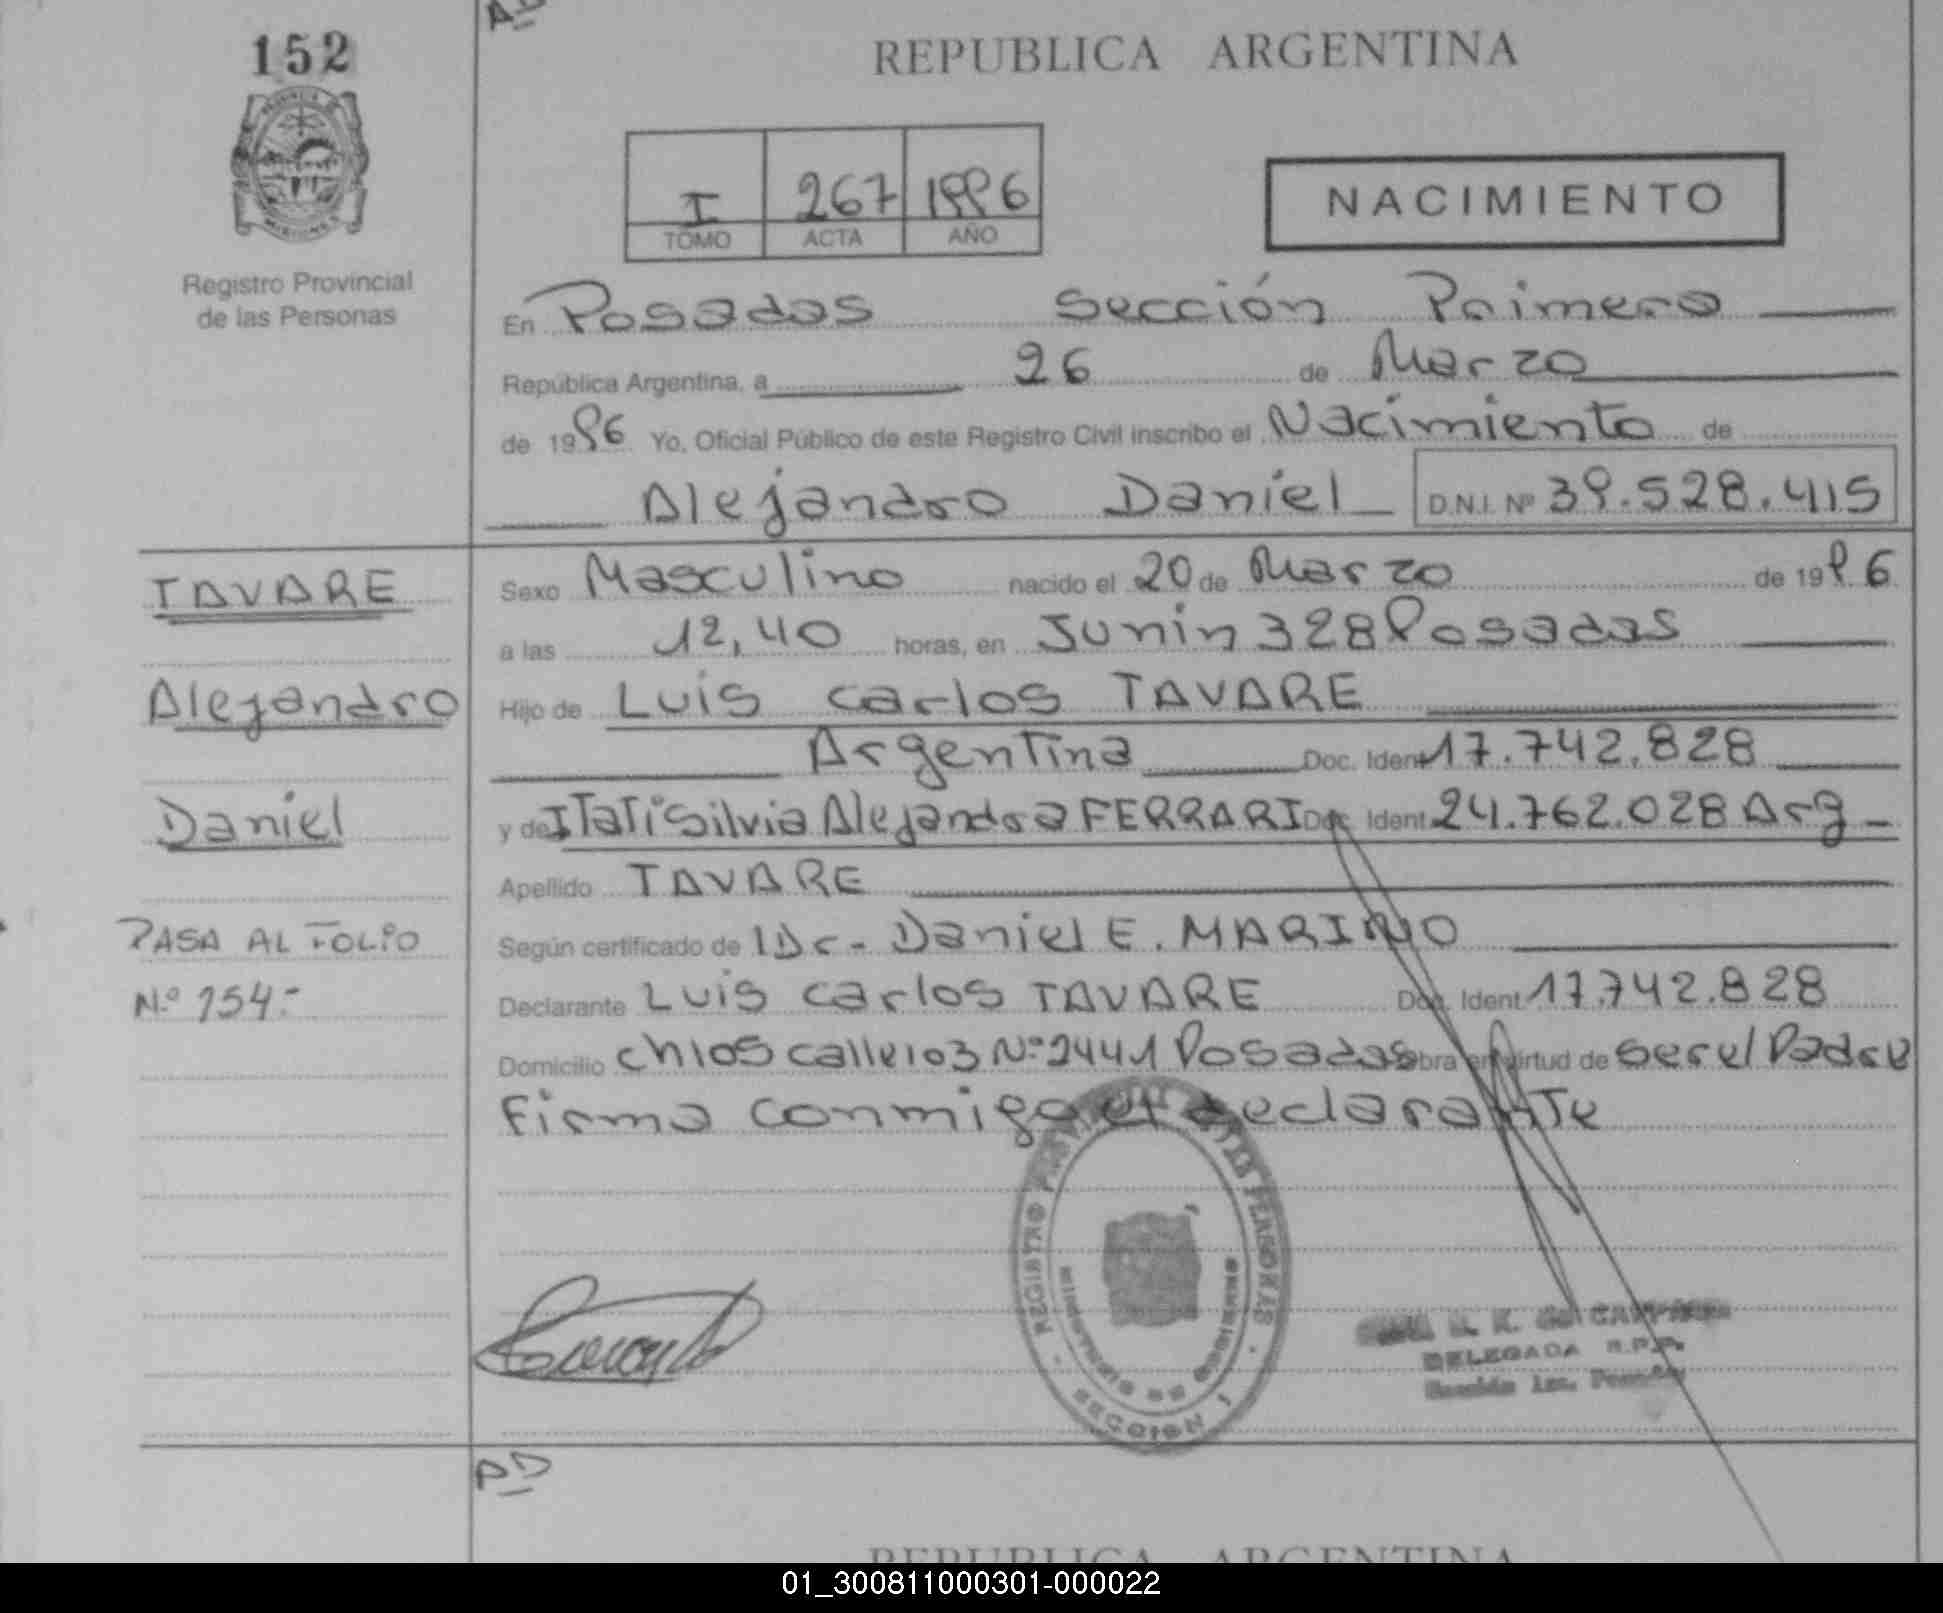 152
REPUBLICA ARGENTINA
I 267 1996
TOMO ACTA AÑO
NACIMIENTO
Registro Provincial
de las Personas
En Posadas Sección Primera
República Argentina, a 26 de Marzo
de 1996 Yo, Oficial Público de este Registro Civil inscribo el Nacimiento de
Alejandro Daniel D.N.I. Nº 39.528.415
TAVARE
Alejandro
Daniel
PASA AL FOLIO
N.º 154.-
Sexo Masculino nacido el 20 de Marzo de 1996
a las 12,40 horas, en Junin 328 Posadas
Hijo de Luis Carlos TAVARE
Argentina Doc. Ident 17.742.828
y de ITaTi Silvia Alejandra FERRARI Doc. Ident 24.762.028 Arg
Apellido TAVARE
Según certificado de Dr. Daniel E. MARINO
Declarante Luis Carlos TAVARE Doc. Ident 17.742.828
Domicilio ch105 calle 103 Nº 2441 Posadas obra en virtud de ser el Padre
Firma conmigo el declarante
REGISTRO PROVINCIAL DE LAS PERSONAS
SECCION 1
DELEGADA R.P.P.
AD
REPUBLICA ARGENTINA
01_300811000301-000022